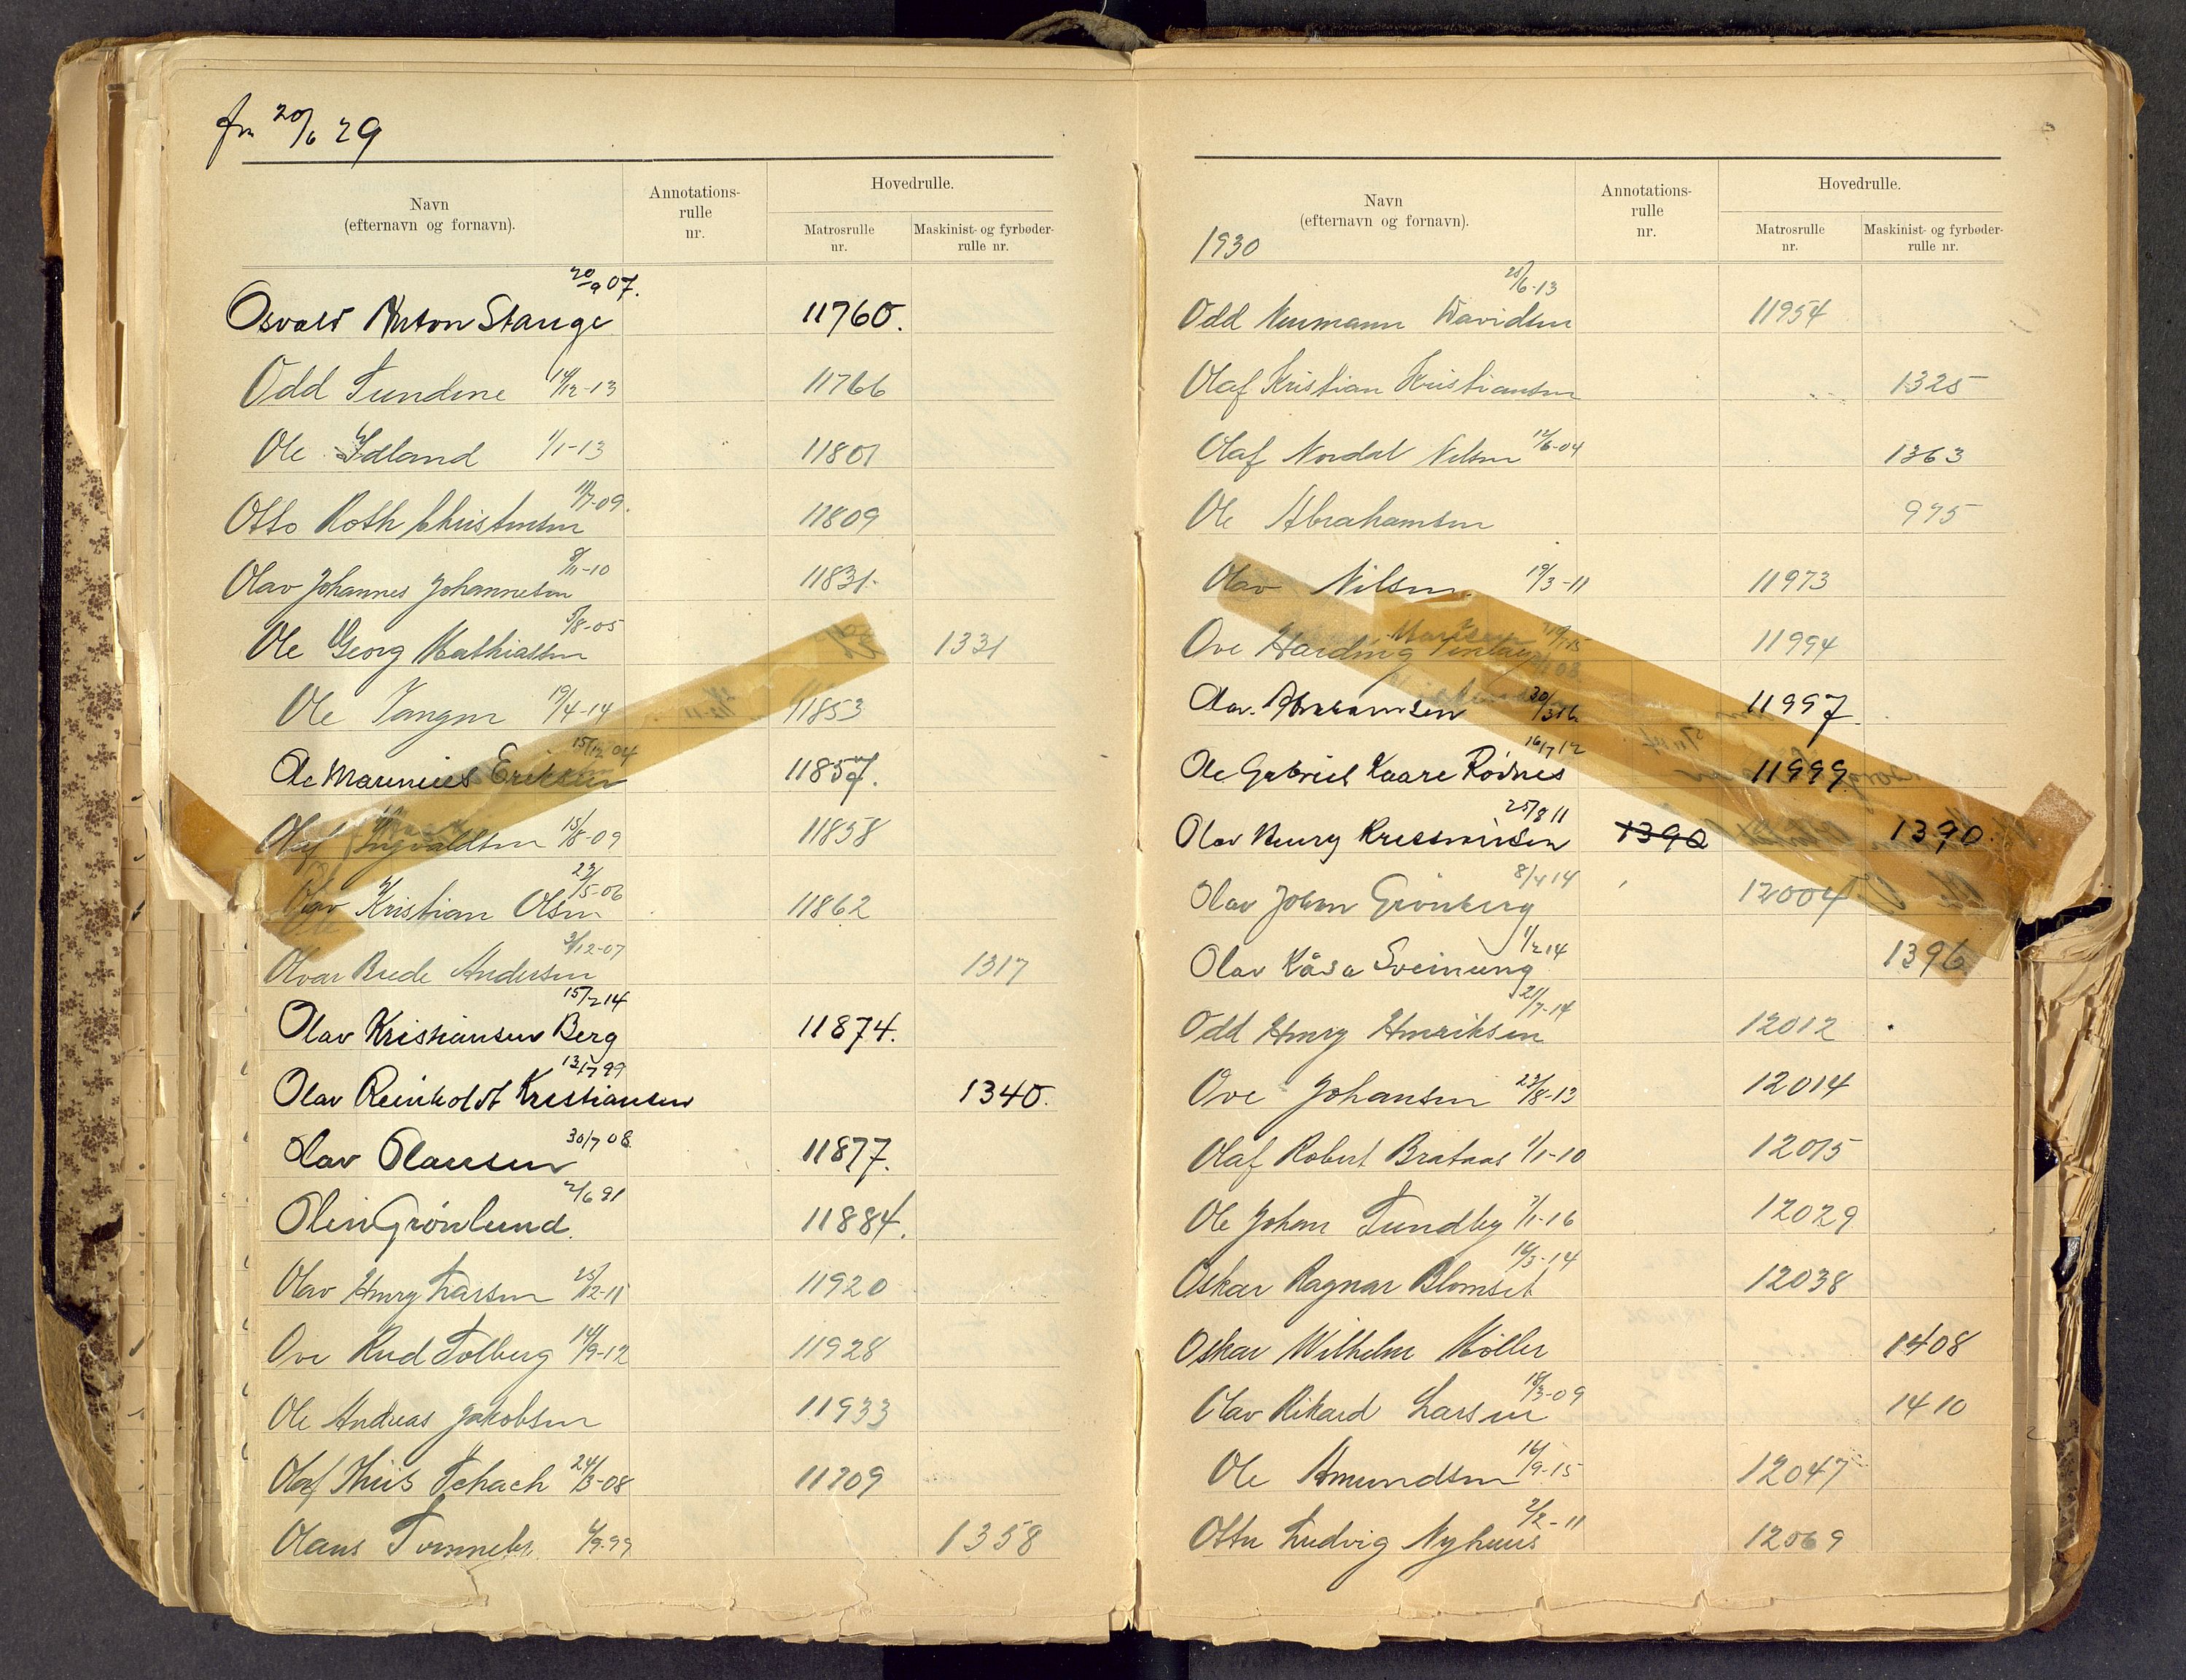 fra 20/6 29
Navn
(efternavn og fornavn).
Annotations-
rulle
nr.
Hovedrulle.
Matrosrulle
nr.
Maskinist- og fyrbøder-
rulle nr.
Osvald Anton Stange 20/9 07. 11760.
Odd Tundene 14/12-13 11766
Ole Ydland 1/1-13 11801
Otto Roth Christensen 11/7-09. 11809
Olav Johannes Johannesen 8/11-10 11831.
Ole Georg Mathiassen 5/8-05 1331
Ole Tangen 19/4-14 11853
Ole Marinius Eriksen 15/12 04 11857.
Olaf Ingvaldsen 15/8-09 11858
Olav Kristian Olsen 23/5-06 11862
Olvar Brede Andersen 3/12-07 1317
Olav Kristiansen Berg 15/2 14 11874.
Olav Reinholdt Kristiansen 13/7 99 1340.
Olav Olaussen 30/7 08 11877.
Olein Grønlund 2/6 91 11884.
Olav Henry Larsen 25/2-11 11920
Ove Rud Solberg 14/9-12 11928
Ole Andreas Jakobsen 11933
Olaf Thiis Schach 24/3-08 11209
Olaus 4/9-99 1358
1930
Navn
(efternavn og fornavn).
Annotations-
rulle
nr.
Hovedrulle.
Matrosrulle
nr.
Maskinist- og fyrbøder-
rulle nr.
Odd Neumann Davidsen 25/6-13 11954
Olaf Kristian Kristiansen 1325
Olaf Nordal Nilsen 12/6-04 1363
Ole Abrahamsen 975
Olav Nilsen 19/3-11 11973
Ove Harding 11994
Olav Abrahamsen 30/3 16 11997.
Ole Gabriel Kaare Rødnes 16/7 12 11999.
Olav Henry Rasmussen 25/8 11 1390 1390.
Olav Johan Grønberg 8/4 14 12004
Olav Kåsa Sveinung 1/2 14 1396
Odd Henry Henriksen 21/7-14 12012
Ove Johansen 23/8-13 12014
Olaf Robert Brataas 1/1-10 12015
Ole Johan Sundby 7/1-16 12029
Oskar Ragnar Blomset 16/3-14 12038
Oskar Wilhelm Møller 1408
Olav Rikard Larsen 18/3-09 1410
Ole Amundsen 16/9-15 12047
Otto Ludvig Nyhuus 2/2-11 12069